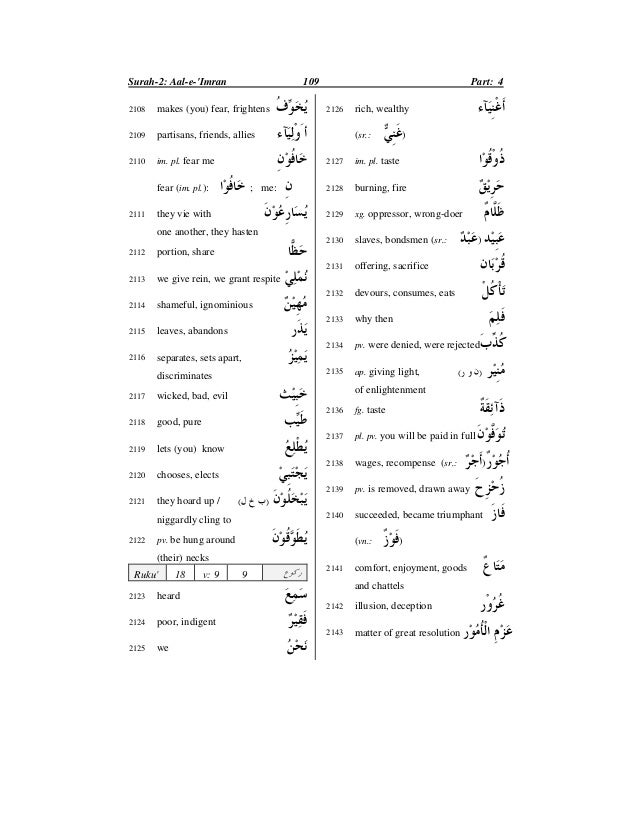 Surah-2: Aal-e-'Imran 109 Part: 4
2108 makes (you) fear, frightens يُخَوِّفُ
2109 partisans, friends, allies أَوْلِيَآء
2110 im. pl. fear me خَافُوْنِ
fear (im. pl.): خَافُوْا ; me: نِ
2111 they vie with يُسَارِعُوْنَ
one another, they hasten
2112 portion, share حَظًّا
2113 we give rein, we grant respite نُمْلِيْ
2114 shameful, ignominious مُهِيْنٌ
2115 leaves, abandons يَذَرَ
2116 separates, sets apart, يَمِيْزُ
discriminates
2117 wicked, bad, evil خَبِيْث
2118 good, pure طَيِّب
2119 lets (you) know يُطْلِعُ
2120 chooses, elects يَجْتَبِيْ
2121 they hoard up / (ب خ ل) يَبْخَلُوْنَ
niggardly cling to
2122 pv. be hung around يُطَوَّقُوْنَ
(their) necks
Ruku' 18 v: 9 9 ركوع
2123 heard سَمِعَ
2124 poor, indigent فَقِيْرٌ
2125 we نَحْنُ
2126 rich, wealthy أَغْنِيَآء
(sr.: غَنِيٌّ)
2127 im. pl. taste ذُوْقُوْا
2128 burning, fire حَرِيْقٌ
2129 xg. oppressor, wrong-doer ظَلَّامٌ
2130 slaves, bondsmen (sr.: عَبْدٌ) عَبِيْد
2131 offering, sacrifice قُرْبَان
2132 devours, consumes, eats تَأْكُلْ
2133 why then فَلِمَ
2134 pv. were denied, were rejected كُذِّبَ
2135 ap. giving light, (ن و ر) مُنِيْر
of enlightenment
2136 fg. taste ذَآئِقَةٌ
2137 pl. pv. you will be paid in full تُوَفَّوْنَ
2138 wages, recompense (sr.: أَجْرٌ) أُجُوْرٌ
2139 pv. is removed, drawn away زُحْزِحَ
2140 succeeded, became triumphant فَازَ
(vn.: فَوْزٌ)
2141 comfort, enjoyment, goods مَتَاعٌ
and chattels
2142 illusion, deception غُرُوْر
2143 matter of great resolution عَزْمِ الْأُمُوْر